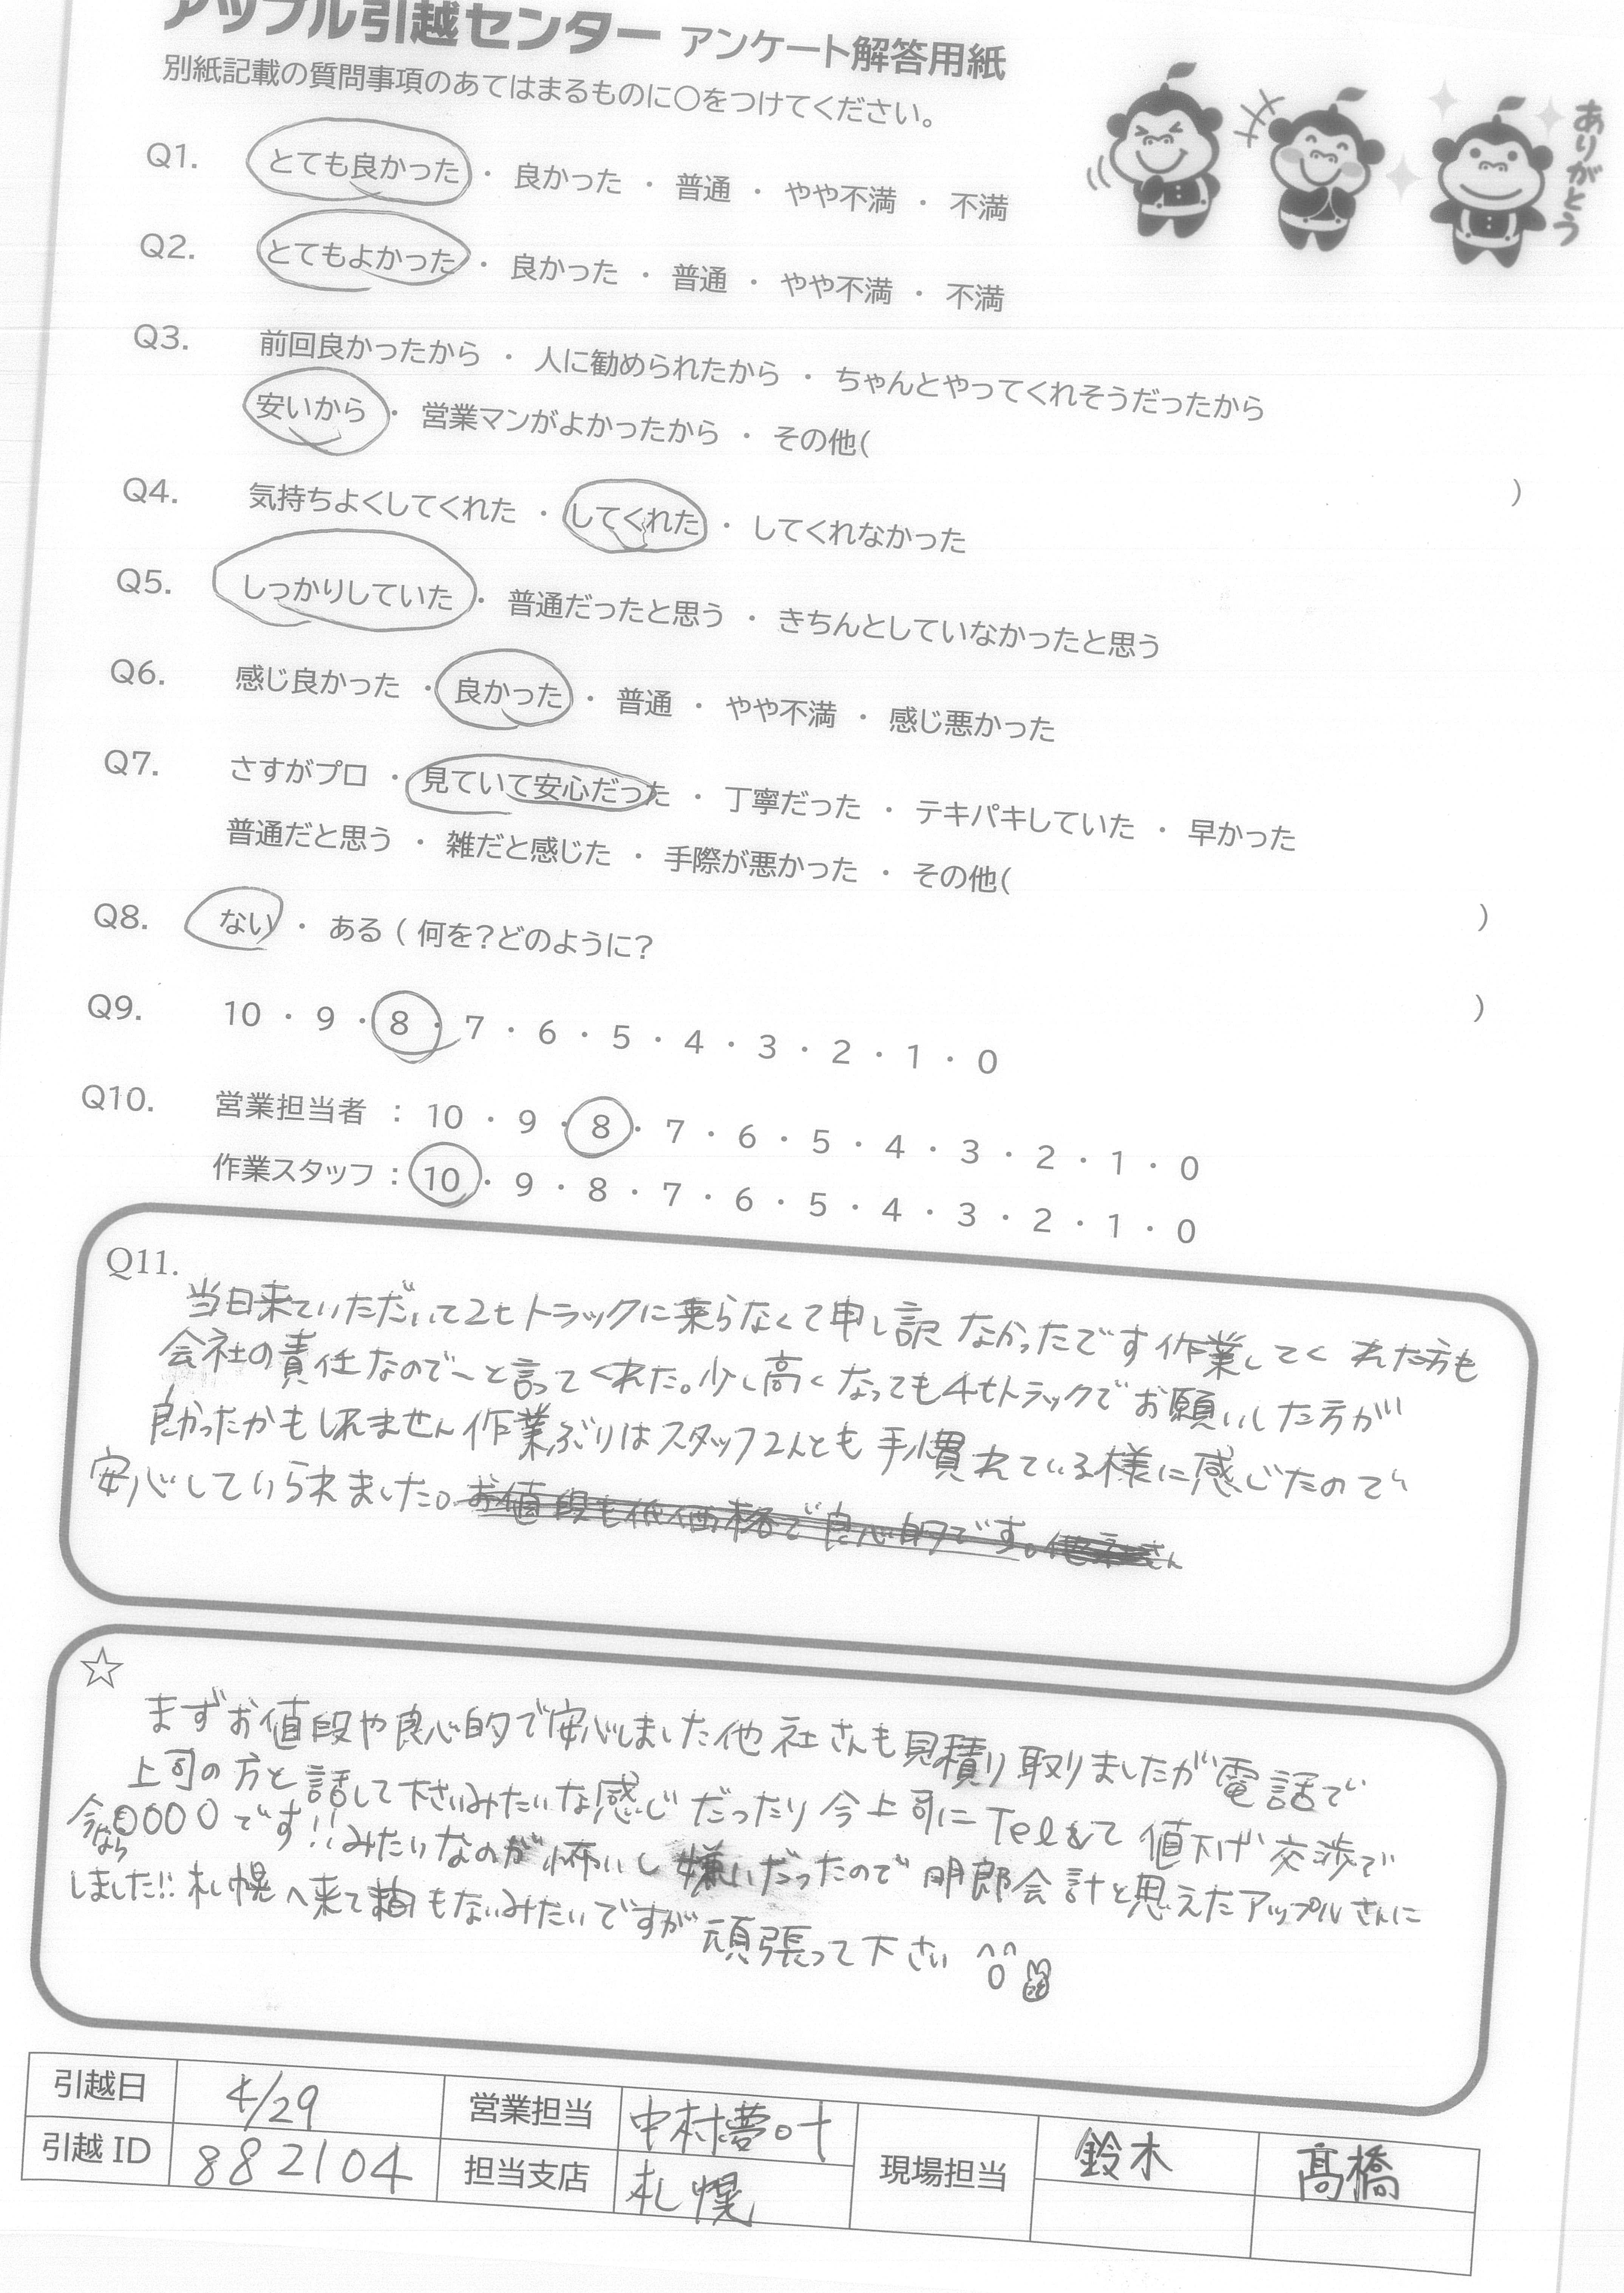 アップル引越センター アンケート解答用紙
別紙記載の質問事項のあてはまるものに○をつけてください。
ありがとう
Q1. とても良かった ・ 良かった ・ 普通 ・ やや不満 ・ 不満
Q2. とてもよかった ・ 良かった ・ 普通 ・ やや不満 ・ 不満
Q3. 前回良かったから ・ 人に勧められたから ・ ちゃんとやってくれそうだったから
安いから ・ 営業マンがよかったから ・ その他( )
Q4. 気持ちよくしてくれた ・ してくれた ・ してくれなかった
Q5. しっかりしていた ・ 普通だったと思う ・ きちんとしていなかったと思う
Q6. 感じ良かった ・ 良かった ・ 普通 ・ やや不満 ・ 感じ悪かった
Q7. さすがプロ ・ 見ていて安心だった ・ 丁寧だった ・ テキパキしていた ・ 早かった
普通だと思う ・ 雑だと感じた ・ 手際が悪かった ・ その他( )
Q8. ない ・ ある ( 何を?どのように? )
Q9. 10 ・ 9 ・ 8 ・ 7 ・ 6 ・ 5 ・ 4 ・ 3 ・ 2 ・ 1 ・ 0
Q10. 営業担当者 : 10 ・ 9 ・ 8 ・ 7 ・ 6 ・ 5 ・ 4 ・ 3 ・ 2 ・ 1 ・ 0
作業スタッフ : 10 ・ 9 ・ 8 ・ 7 ・ 6 ・ 5 ・ 4 ・ 3 ・ 2 ・ 1 ・ 0
Q11.
当日来ていただいて2tトラックに乗らなくて申し訳なかったです作業してくれた方も
会社の責任なので〜と言ってくれた。少し高くなっても4tトラックでお願いした方が
良かったかもしれません作業ぶりはスタッフ2人とも手慣れている様に感じたので
安心していられました。お値段も低価格で良心的です。他社さん
☆
まずお値段や良心的で安心しました他社さんも見積り取りましたが電話で
上司の方と話して下さいみたいな感じだったり今上司にTelをして値下げ交渉で
今なら0000です!!みたいなのが怖いし嫌いだったので明郎会計と思えたアップルさんに
しました!! 札幌へ来て間もないみたいですが頑張って下さい
引越日 4/29 営業担当 中村夢叶 現場担当 鈴木 髙橋
引越 ID 882104 担当支店 札幌